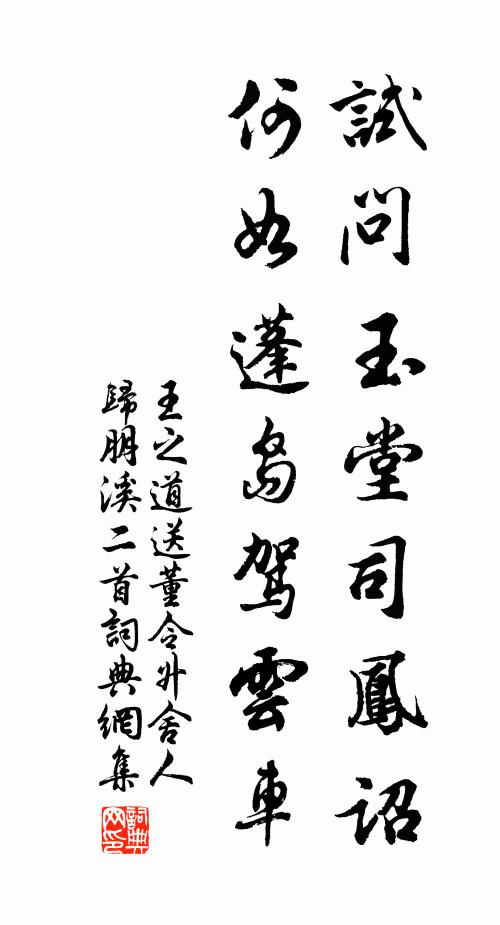 試問玉堂司鳳詔
何如蓬島駕雲車
王之道送董令升舍人
歸朋溪二首詞典網集
詞典
网印